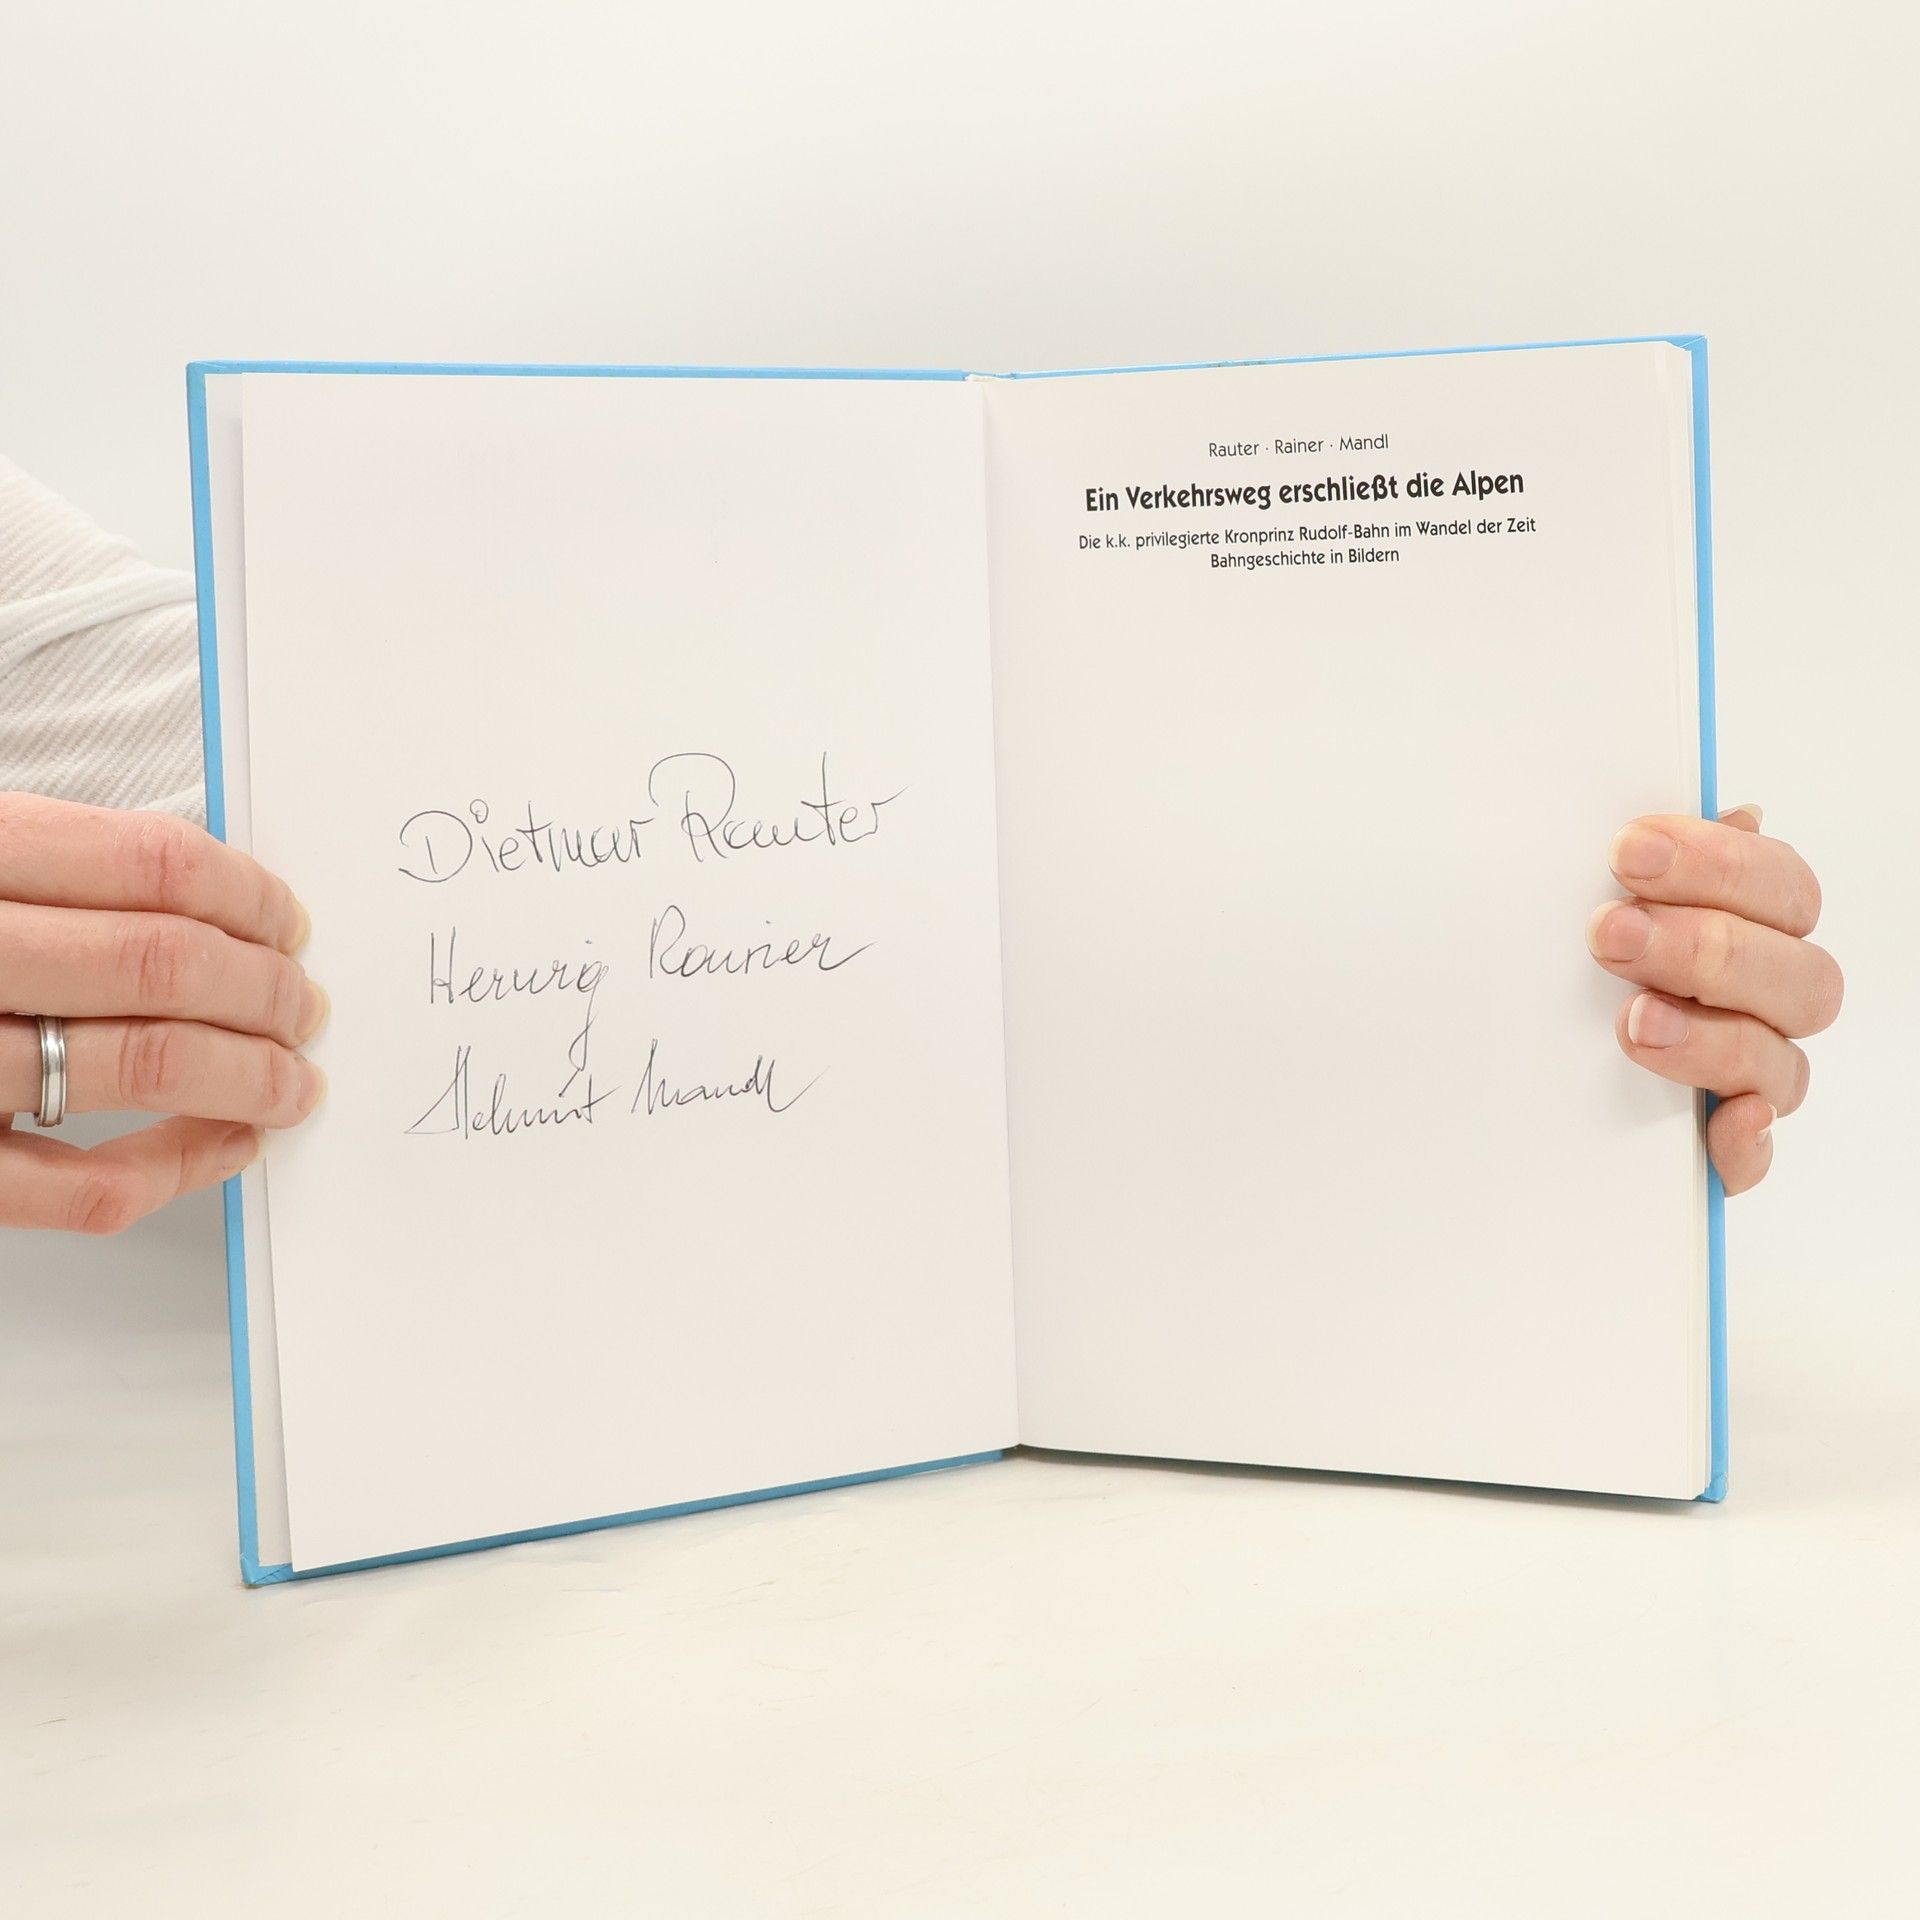 Dietmar Rauter
Herwig Rainer
Helmut Mandl
Rauter · Rainer · Mandl
Ein Verkehrsweg erschließt die Alpen
Die k.k. privilegierte Kronprinz Rudolf-Bahn im Wandel der Zeit
Bahngeschichte in Bildern